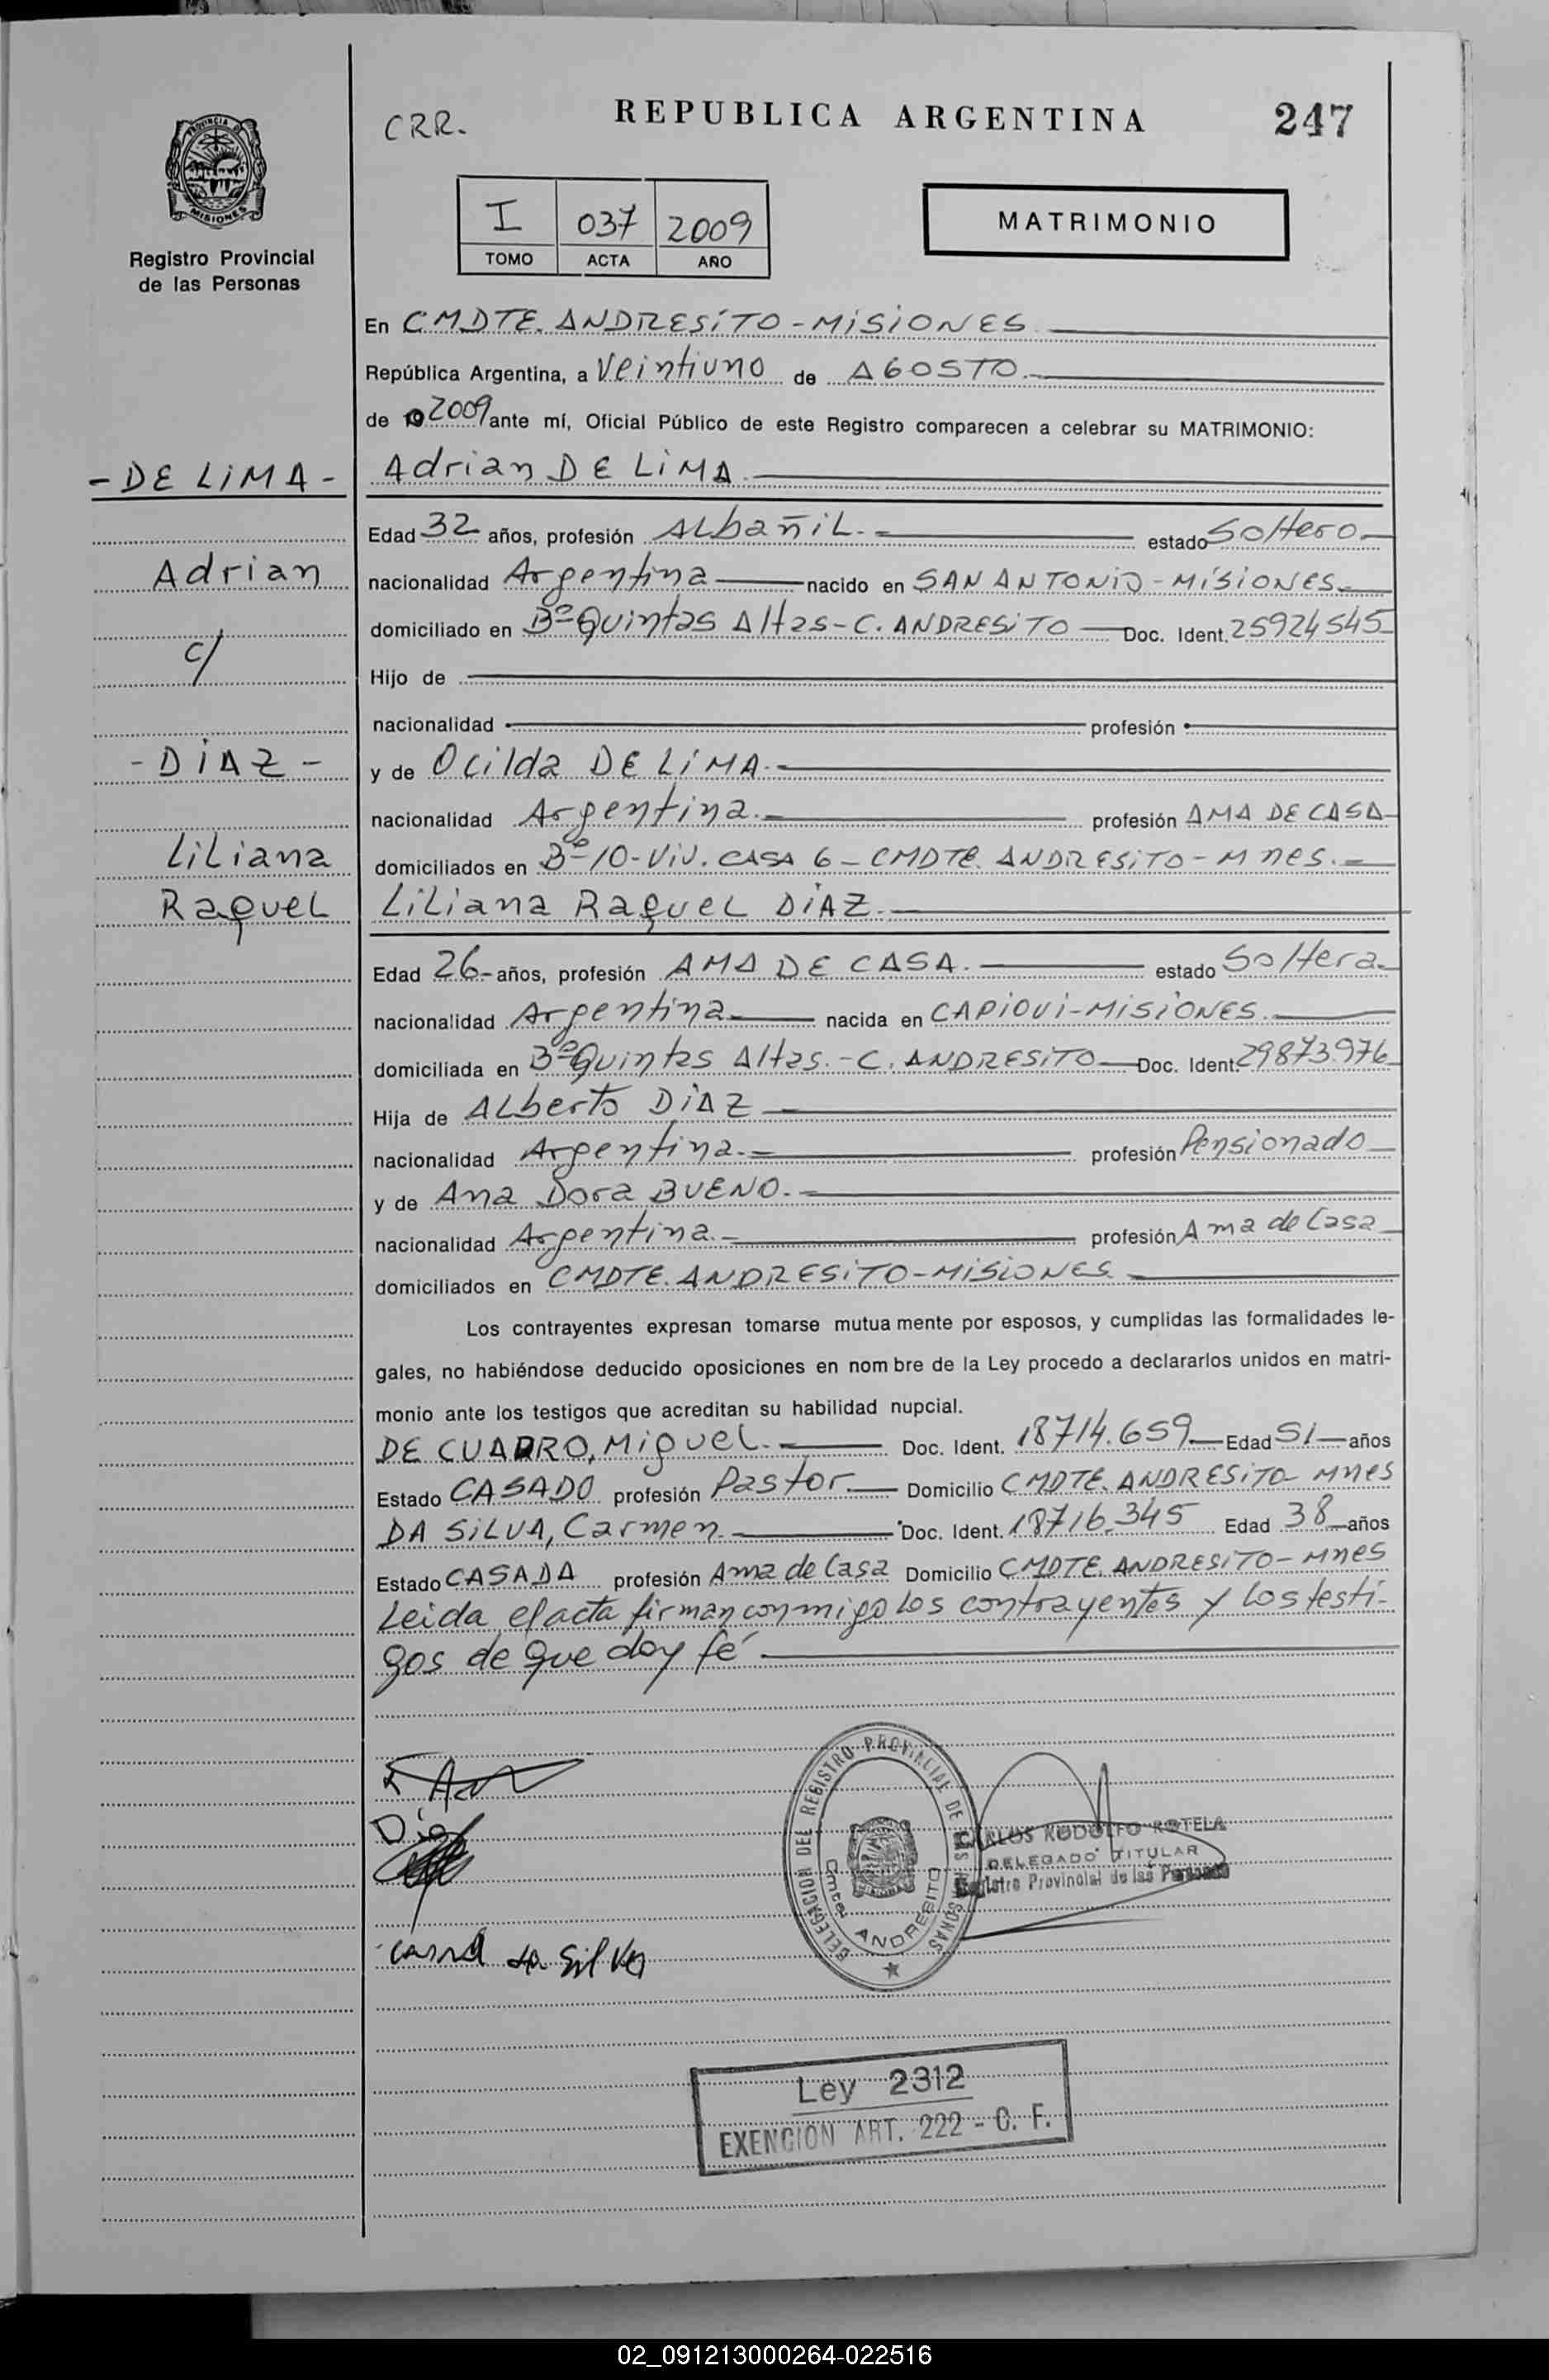 CRR.
REPUBLICA ARGENTINA
247
PROVINCIA
MISIONES
Registro Provincial
de las Personas
I 037 2009
TOMO ACTA AÑO
MATRIMONIO
En CMDTE. ANDRESiTO - MiSiONES
República Argentina, a Veintiuno de AGOSTO.
de 19 2009 ante mí, Oficial Público de este Registro comparecen a celebrar su MATRIMONIO:
- DE LiMA -
Adrian DE LiMA.
Edad 32 años, profesión ALbañiL. estado Soltero
Adrian
nacionalidad Argentina nacido en SAN ANTONiO - MiSiONES
domiciliado en Bº Quintas Altas - C. ANDRESiTO Doc. Ident. 25924545
c/
Hijo de
nacionalidad profesión
- DiAZ -
y de Ocilda DE LiMA.
nacionalidad Argentina. profesión AMA DE CASA
LiLiana
domiciliados en Bº 10 - Viv. CASA 6 - CMDTE. ANDRESiTO - Mnes.
RaqueL
LiLiana RaqueL DiAZ.
Edad 26 años, profesión AMA DE CASA. estado Soltera
nacionalidad Argentina nacida en CAPiOVi - MiSiONES.
domiciliada en Bº Quintas Altas. - C. ANDRESiTO Doc. Ident. 29873976
Hija de ALberto DiAZ
nacionalidad Argentina. profesión Pensionado
y de Ana Dora BUENO.
nacionalidad Argentina. profesión Ama de Casa
domiciliados en CMDTE. ANDRESiTO - MiSiONES.
Los contrayentes expresan tomarse mutua mente por esposos, y cumplidas las formalidades le-
gales, no habiéndose deducido oposiciones en nom bre de la Ley procedo a declararlos unidos en matri-
monio ante los testigos que acreditan su habilidad nupcial.
DE CUADRO, MigueL. Doc. Ident. 18714.659 Edad 51 años
Estado CASADO profesión Pastor. Domicilio CMDTE. ANDRESiTO - Mnes
DA SiLVA, Carmen Doc. Ident. 18716.345 Edad 38 años
Estado CASADA profesión Ama de Casa Domicilio CMDTE. ANDRESiTO - Mnes
Leida el acta firman conmigo los contrayentes y los testi-
gos de que doy fé
DELEGACION DEL REGISTRO PROVINCIAL DE LAS PERSONAS
Cmte. ANDRESITO
CARLOS RODOLFO ROTELA
DELEGADO TITULAR
Registro Provincial de las Personas
da Silva
Ley 2312
EXENCION ART. 222 - C. F.
02_091213000264-022516